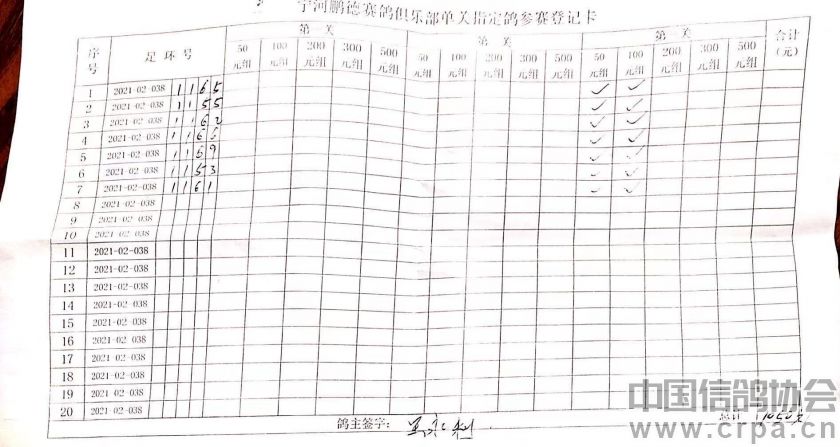 宁河鹏德赛鸽俱乐部单关指定鸽参赛登记卡
序号 足环号 第 关 第 关 第 关 合计（元）
50元组 100元组 200元组 300元组 500元组 50元组 100元组 200元组 300元组 500元组 50元组 100元组 200元组 300元组 500元组
1 2021-02-038 1165 ✓ ✓
2 2021-02-038 1155 ✓ ✓
3 2021-02-038 1162 ✓ ✓
4 2021-02-038 116 ✓ ✓
5 2021-02-038 1159 ✓ ✓
6 2021-02-038 1153 ✓ ✓
7 2021-02-038 1161 ✓ ✓
8 2021-02-038
9 2021-02-038
10 2021-02-038
11 2021-02-038
12 2021-02-038
13 2021-02-038
14 2021-02-038
15 2021-02-038
16 2021-02-038
17 2021-02-038
18 2021-02-038
19 2021-02-038
20 2021-02-038
鸽主签字： 总计 1050元
中国信鸽协会
www.crpa.cn